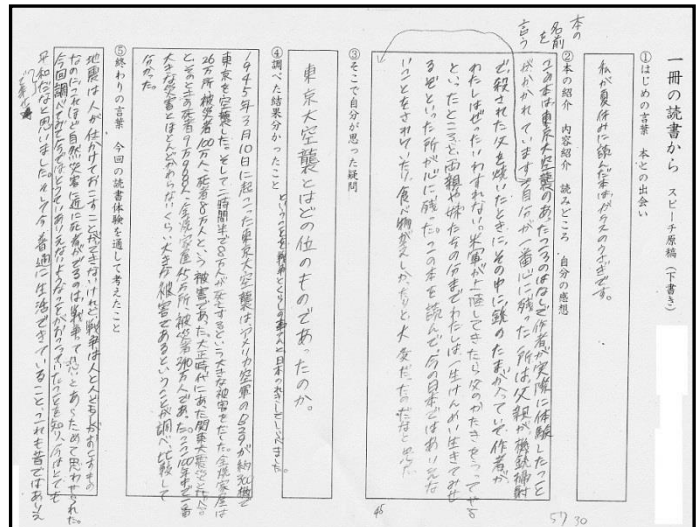 一冊の読書から スピーチ原稿(下書き)
①はじめの言葉 本との出会い
私が夏休みに読んだ本は、ガラスのうさぎです。
②本の紹介 内容紹介 読みどころ 自分の感想
本の名前を言う
この本は、東京大空襲のあったころのはなしで作者が実際に体験したこと
がかかれています。自分が一番心に残った所は父親が機銃掃射
で殺された父を焼いたときに、その中に、銃のたまが入っていて、作者が
わたしはぜったいわすれない。米軍が上陸してきたら父のかたきをうってやる
といったところと、両親や妹たちの分までわたしは一生けんめい生きてみせ
るぞといった所が心に残った。この本を読んで、今の日本ではありえな
いことをされていたり、食べ物が
大変だったのだなと
③そこで自分が思った疑問
東京大空襲とはどの位のものであったのか。
④調べた結果分かったこと
ということを戦争とくらしの事典と日本のれきしでしらべました。
1945年3月10日に起こった東京大空襲はアメリカ空軍のB29が約300機で
東京を空襲した。そして二時間半で8万人が死亡するという大きな被害をだした。全焼家屋は
26万所、被災者100万人、死者8万人という被害であった。大正時代にあった関東大震災と比べる
と、そのときの死者9万9千
大きな災害とほとんどかわらないくらい大きな被害であるということが調べ比較して
分かった。
⑤終わりの言葉 今回の読書体験を通して考えたこと
地震は人が仕かけておこすことができないけれど、戦争は人と人どもがおとすもの
なのにこれほど自然災害に近い死者がでるのは、戦争って恐いとあらためて思わせられた。
今回調べてみて今ではとうていありえないようなことがおこっていたことを知り、今はとても
平和だなと思いました。そして今普通に生活できていること、これも昔ではありえ
57 30
45